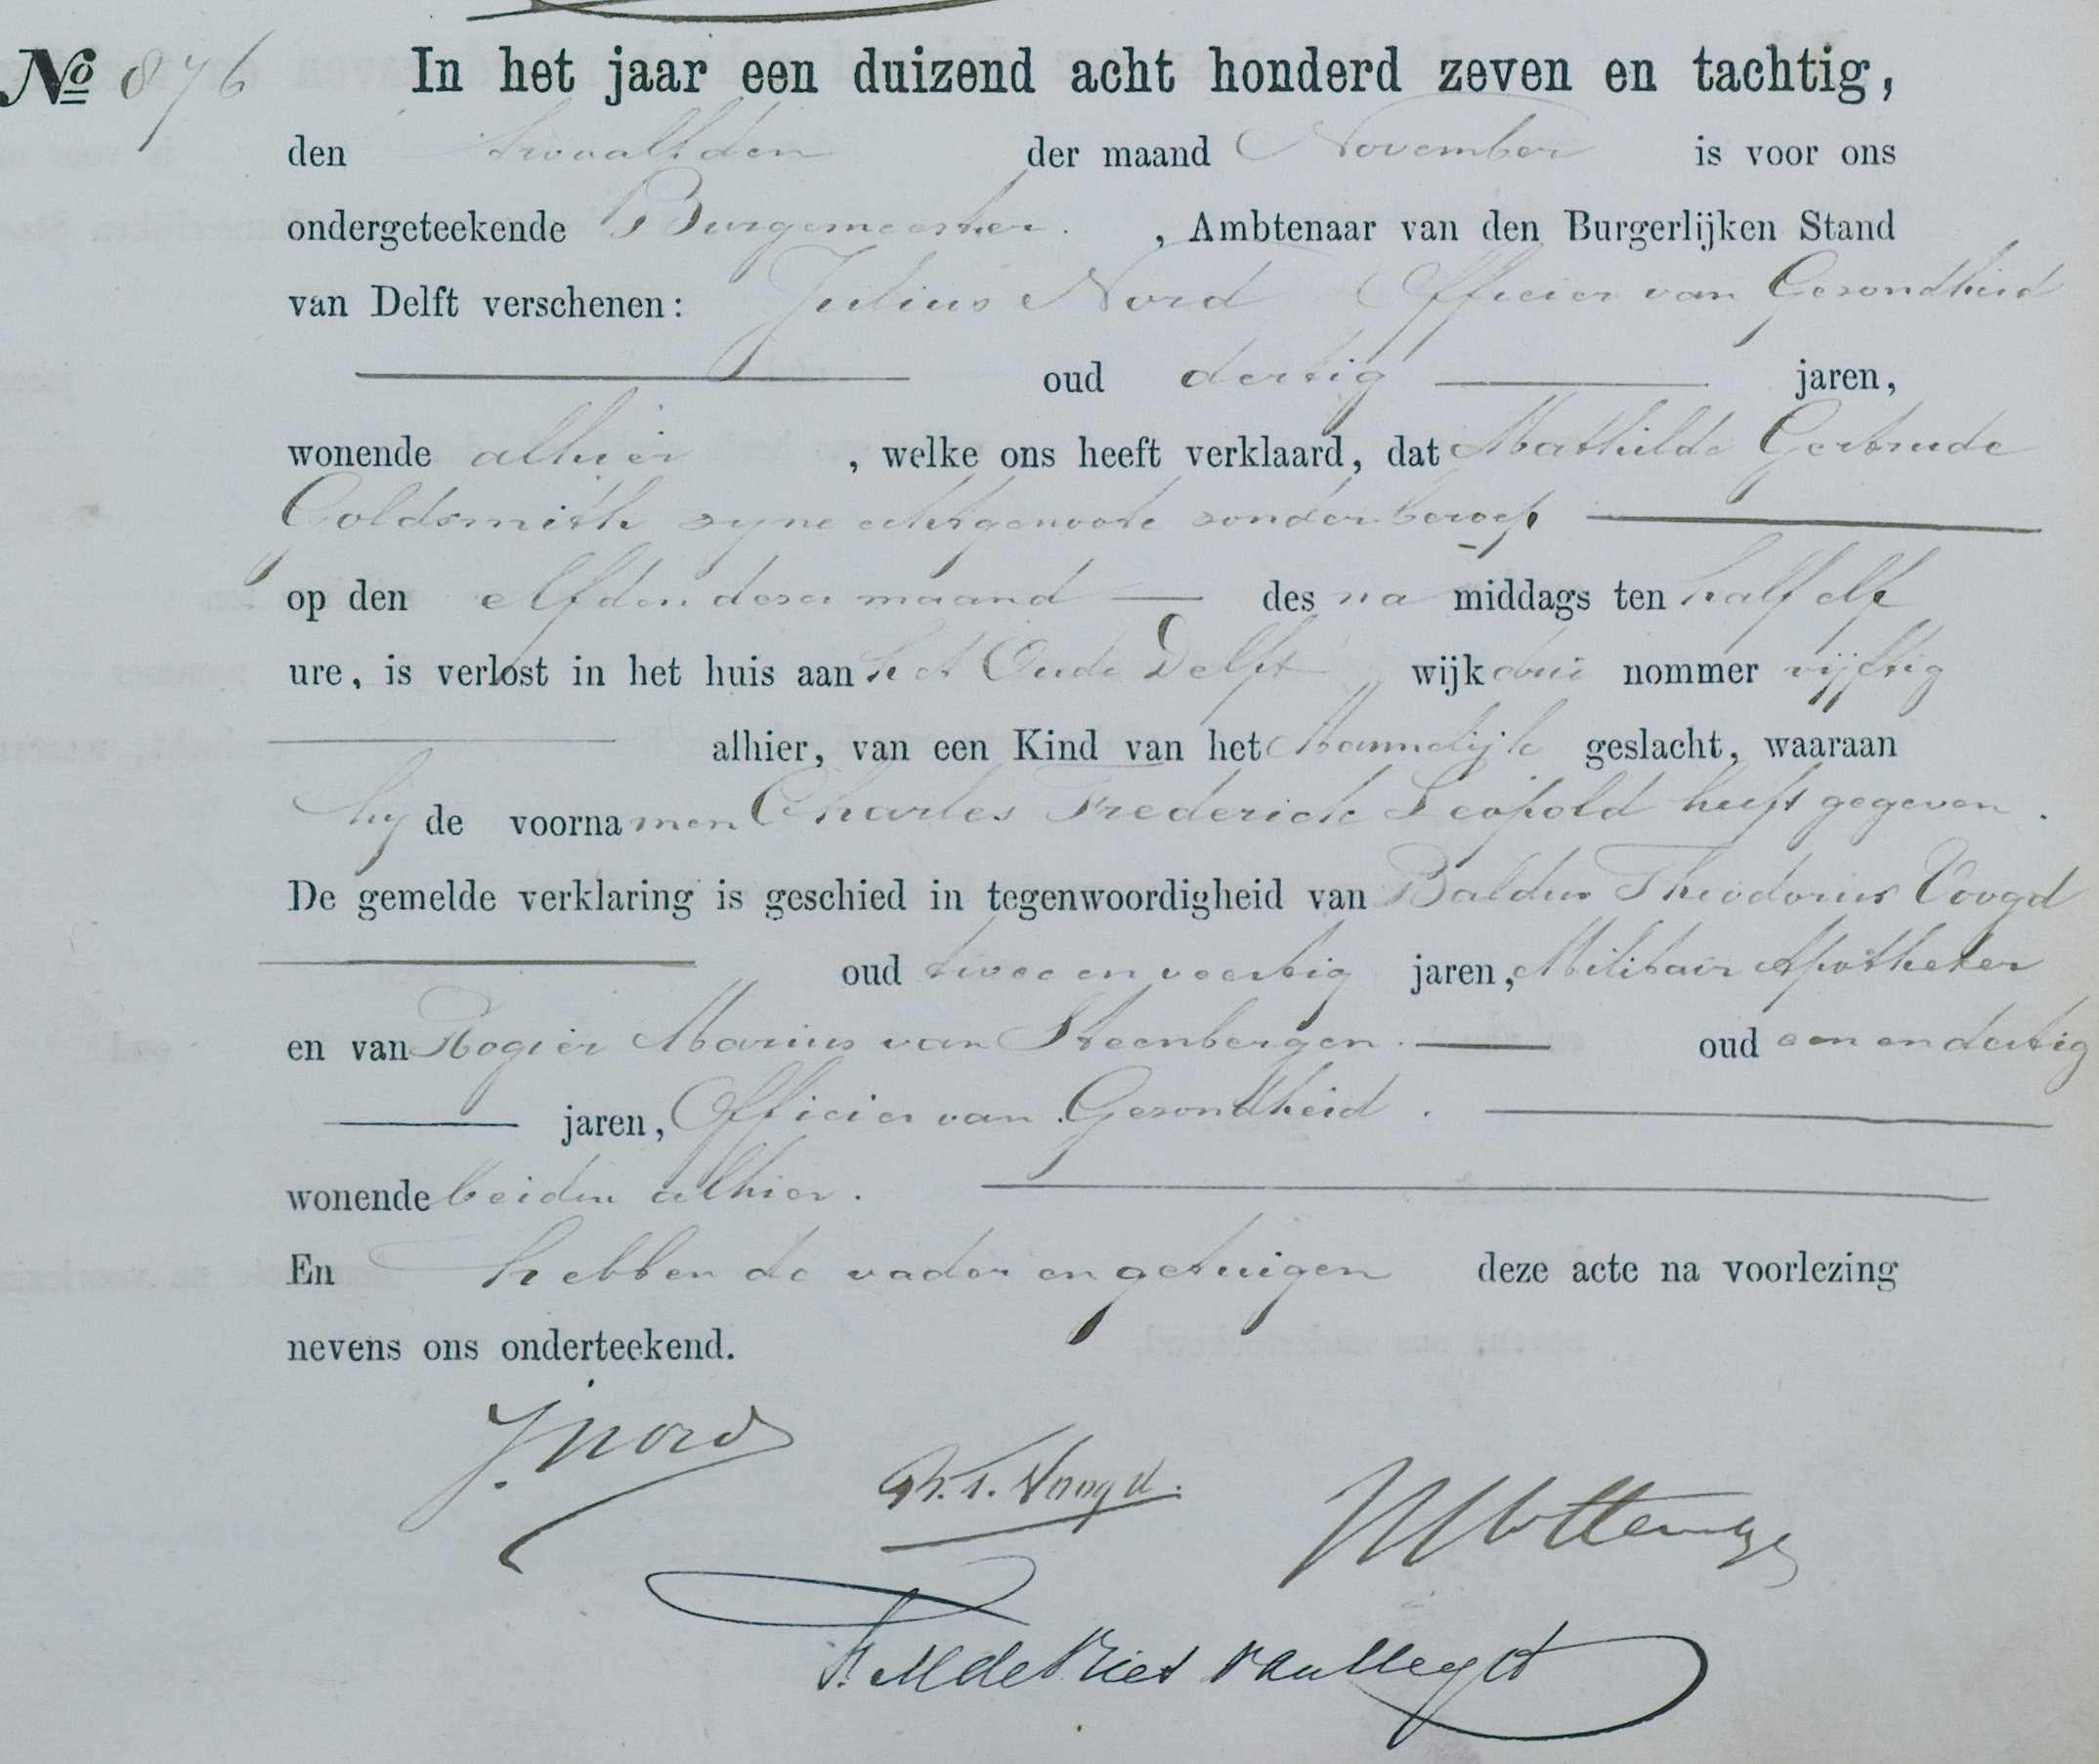 No 876 In het jaar een duizend acht honderd zeven en tachtig,
den twaalfden der maand November is voor ons
ondergeteekende Burgemeester. , Ambtenaar van den Burgerlijken Stand
van Delft verschenen: Julius Nord Officier van Gezondheid
oud dertig jaren,
wonende alhier , welke ons heeft verklaard, dat Mathilde Gertrude
Goldsmith zyne echtgenoote zonder beroep
op den elfden dezer maand des na middags ten half elf
ure, is verlost in het huis aan het Oude Delft wijk drie nommer vijftig
alhier, van een Kind van het Mannelijk geslacht, waaraan
hij de voornamen Charles Frederick Leopold heeft gegeven.
De gemelde verklaring is geschied in tegenwoordigheid van Baldus Theodorus Voogd
oud twee en veertig jaren, Militair Apotheker
en van Rogier Marius van Steenbergen. oud een en dertig
jaren, Officier van Gezondheid.
wonende beiden alhier.
En hebben de vader en getuigen deze acte na voorlezing
nevens ons onderteekend.
J. Nord
B. T. Voogd.